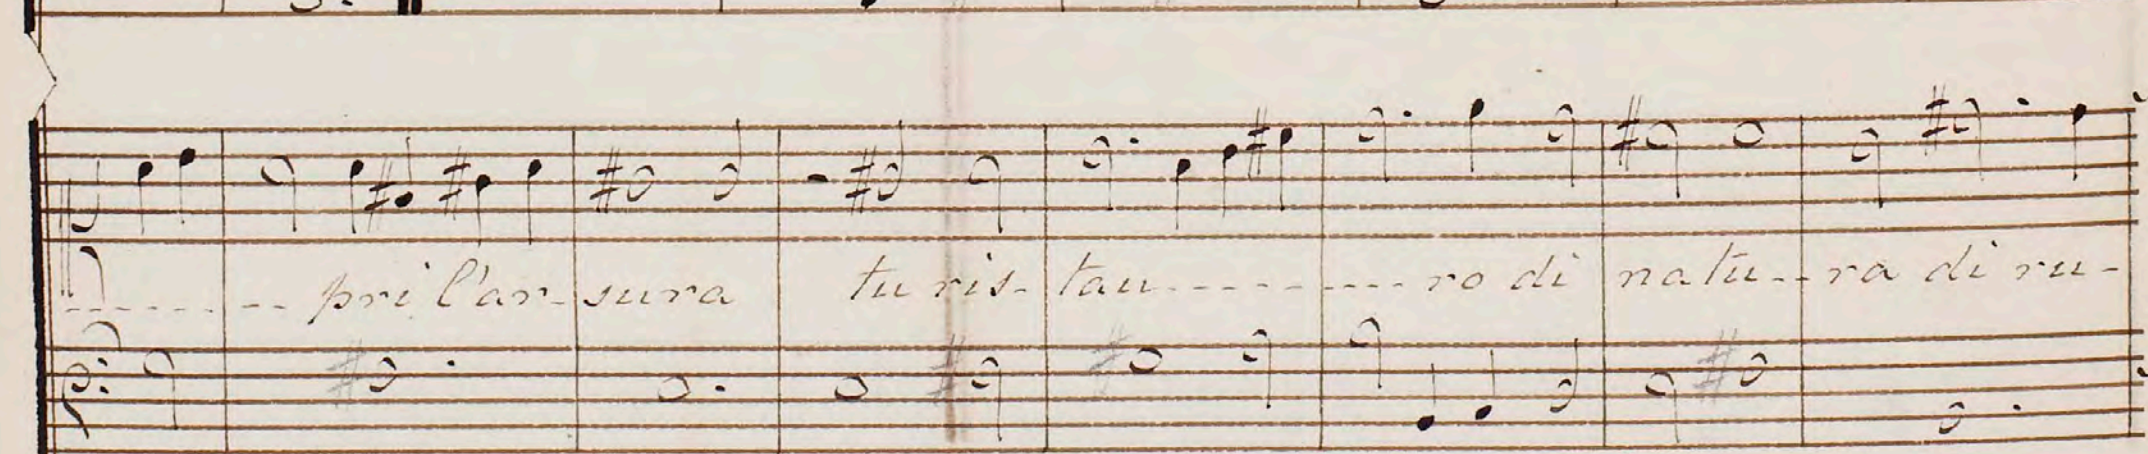 ------- pri l'ar-sura tu ris-tau---------ro di natu--ra di ru-